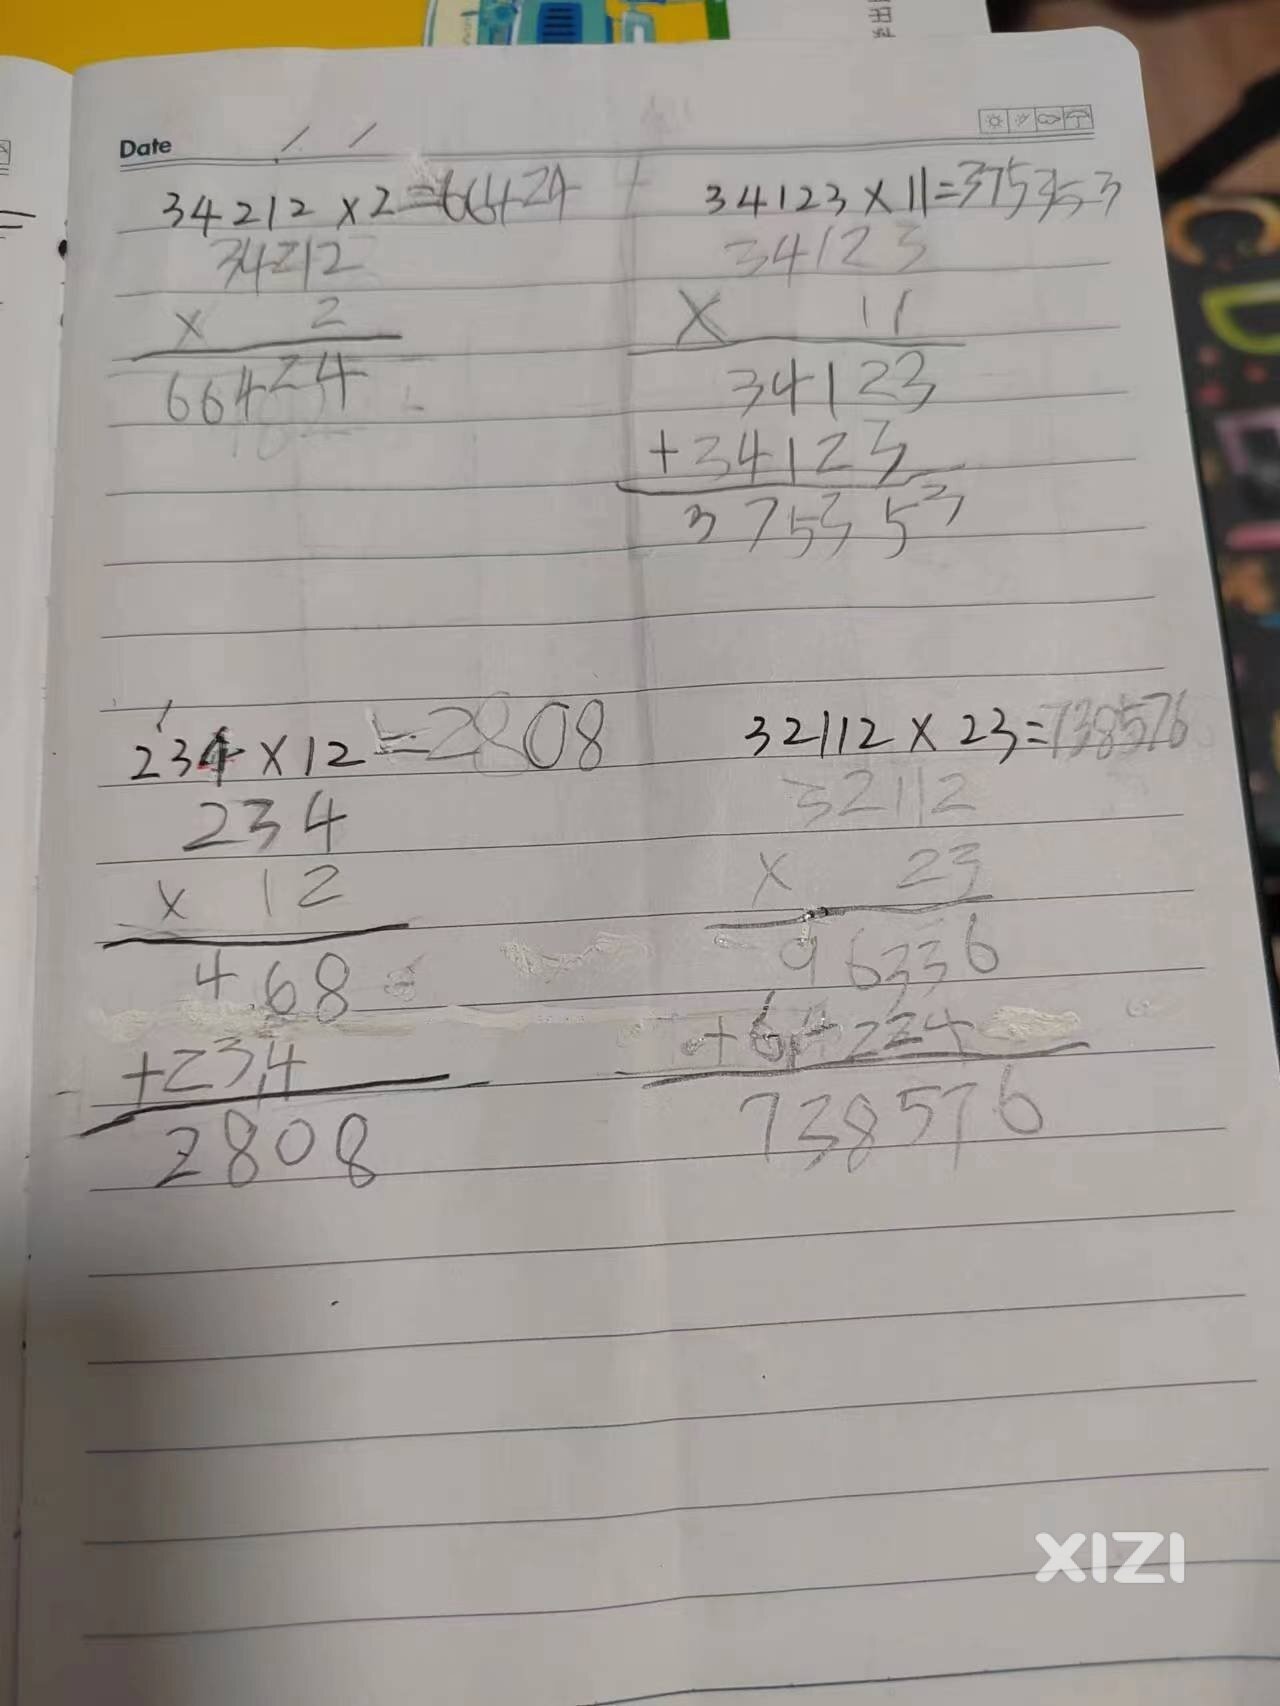 Date / /
34212 × 2 = 66424
34212
× 2
66424
34123 × 11 = 375353
34123
× 11
34123
+ 34123
375353
234 × 12 = 2808
234
× 12
468
+ 234
2808
32112 × 23 = 738576
32112
× 23
96336
+ 64224
738576
XIZI